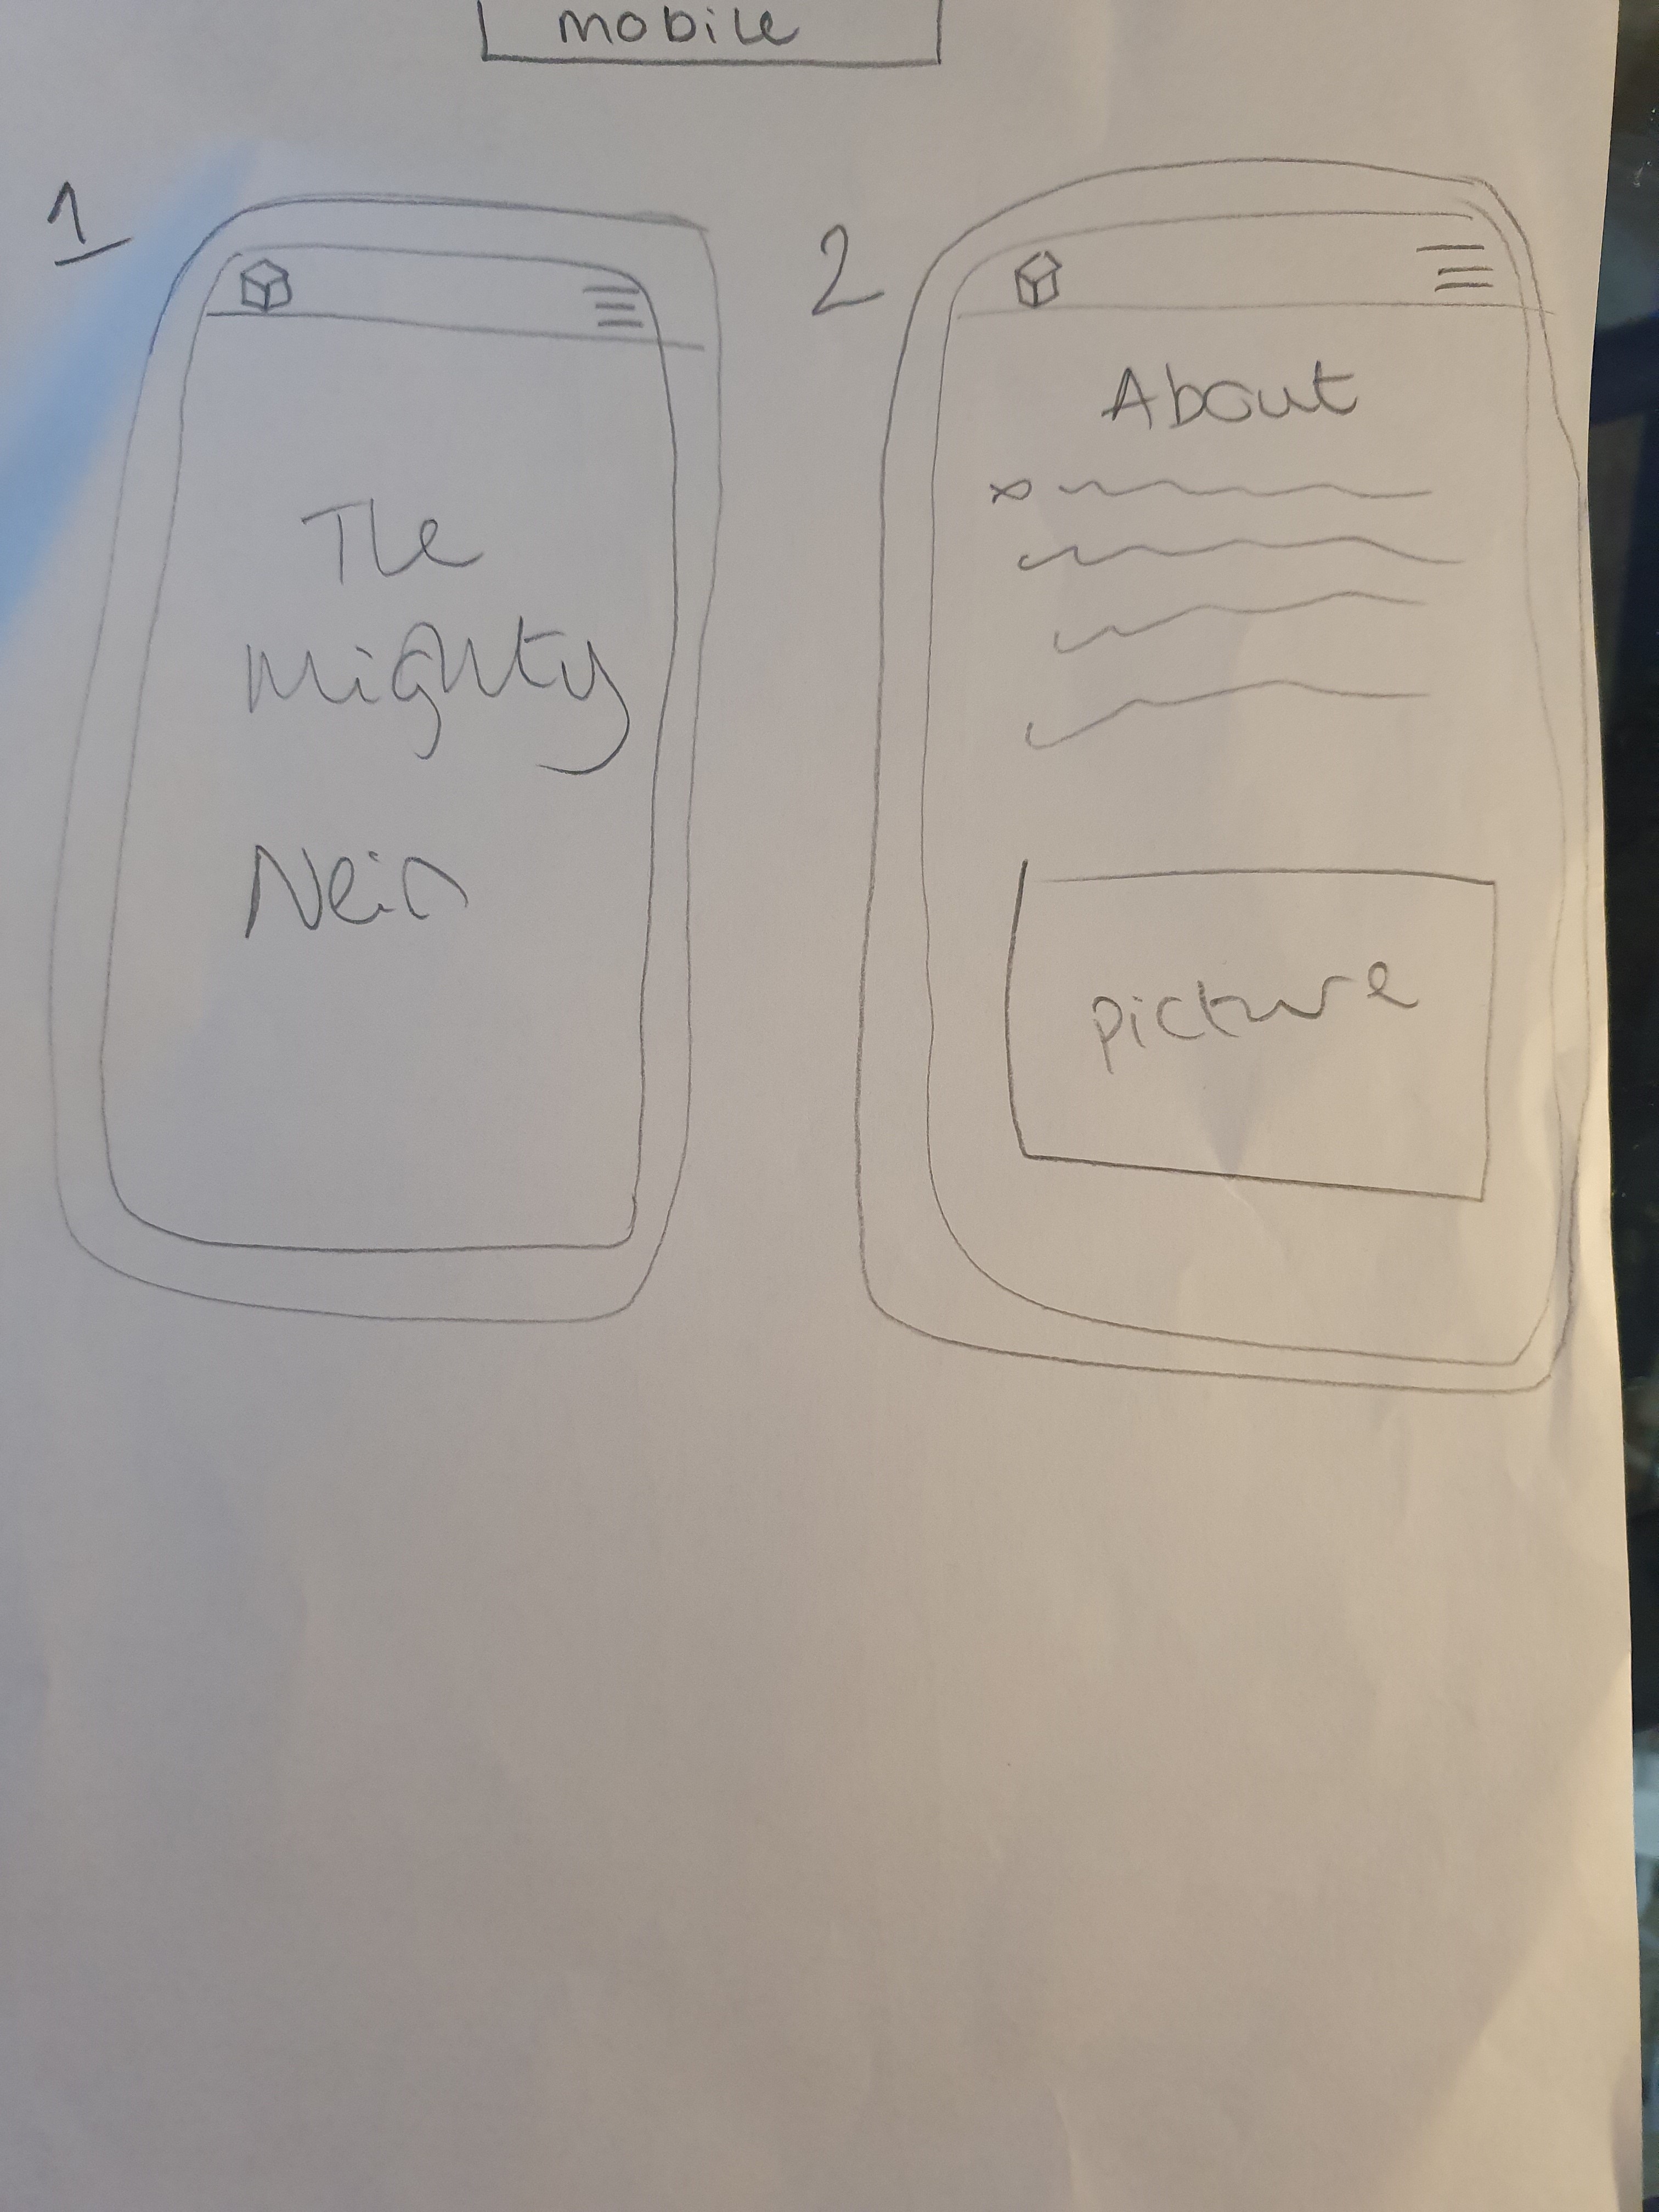 mobile
1
The
Mighty
Nein
2
About
picture